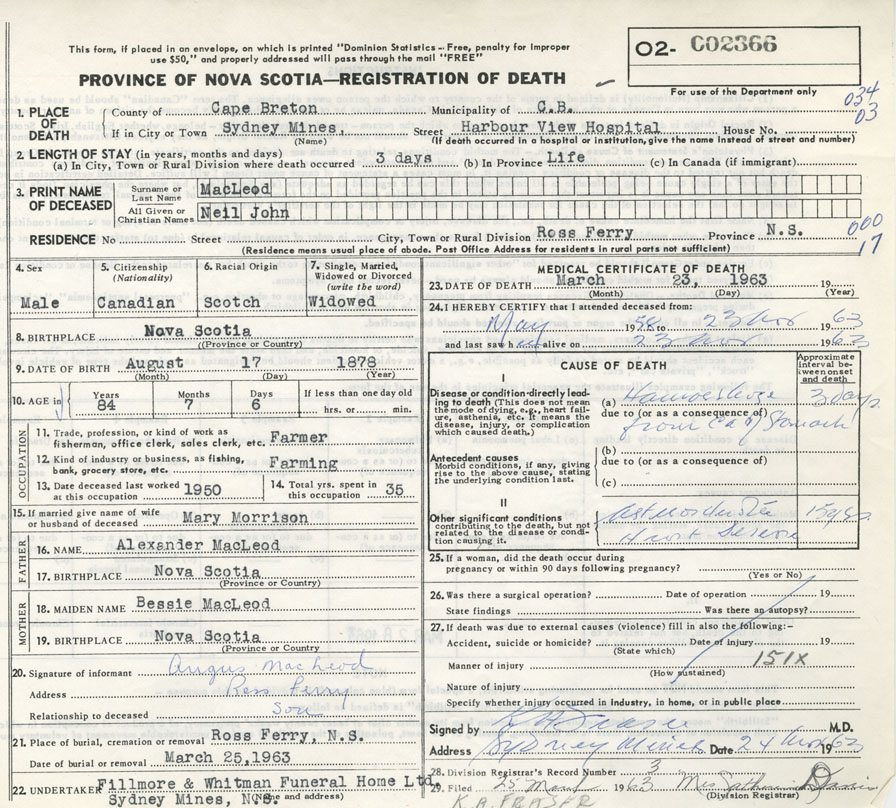 This form, if placed in an envelope, on which is printed "Dominion Statistics – Free, penalty for Improper
use $50," and properly addressed will pass through the mail "FREE"
O2- C02366
PROVINCE OF NOVA SCOTIA—REGISTRATION OF DEATH
For use of the Department only
034
03
1. PLACE OF DEATH
County of Cape Breton Municipality of C.B.
If in City or Town Sydney Mines, Street Harbour View Hospital House No.
(Name) (If death occurred in a hospital or institution, give the name instead of street and number)
2. LENGTH OF STAY (in years, months and days)
(a) In City, Town or Rural Division where death occurred 3 days (b) In Province Life (c) In Canada (if immigrant)
3. PRINT NAME OF DECEASED
Surname or Last Name MacLeod
All Given or Christian Names Neil John
RESIDENCE No Street City, Town or Rural Division Ross Ferry Province N.S.
(Residence means usual place of abode. Post Office Address for residents in rural parts not sufficient)
000
17
4. Sex Male
5. Citizenship (Nationality) Canadian
6. Racial Origin Scotch
7. Single, Married, Widowed or Divorced (write the word) Widowed
8. BIRTHPLACE Nova Scotia
(Province or Country)
9. DATE OF BIRTH August 17 1878
(Month) (Day) (Year)
10. AGE in Years 84 Months 7 Days 6 If less than one day old hrs. or min.
OCCUPATION
11. Trade, profession, or kind of work as fisherman, office clerk, sales clerk, etc. Farmer
12. Kind of industry or business, as fishing, bank, grocery store, etc. Farming
13. Date deceased last worked at this occupation 1950
14. Total yrs. spent in this occupation 35
15. If married give name of wife or husband of deceased Mary Morrison
FATHER
16. NAME Alexander MacLeod
17. BIRTHPLACE Nova Scotia
(Province or Country)
MOTHER
18. MAIDEN NAME Bessie MacLeod
19. BIRTHPLACE Nova Scotia
(Province or Country
20. Signature of informant Angus MacLeod
Address Ross Ferry
Relationship to deceased Son
21. Place of burial, cremation or removal Ross Ferry, N.S.
Date of burial or removal March 25, 1963
22. UNDERTAKER Fillmore & Whitman Funeral Home Ltd
Sydney Mines, N.S.
(Name and address)
MEDICAL CERTIFICATE OF DEATH
23. DATE OF DEATH March 23, 1963 19
(Month) (Day) (Year)
24. I HEREBY CERTIFY that I attended deceased from:
May 1958 to 23 Mar 1963
and last saw h alive on 23 Mar 1963
CAUSE OF DEATH
Approximate interval between onset and death
I
Disease or condition directly leading to death (This does not mean the mode of dying, e.g., heart failure, asthenia, etc. It means the disease, injury, or complication which caused death.)
(a) 3 days
due to (or as a consequence of)
from Ca of Stomach
Antecedent causes
Morbid conditions, if any, giving rise to the above cause, stating the underlying condition last.
(b)
due to (or as a consequence of)
(c)
II
Other significant conditions contributing to the death, but not related to the disease or condition causing it.
Heart Disease
25. If a woman, did the death occur during
pregnancy or within 90 days following pregnancy?
(Yes or No)
26. Was there a surgical operation? Date of operation 19
State findings Was there an autopsy?
27. If death was due to external causes (violence) fill in also the following:–
Accident, suicide or homicide? Date of injury 19
(State which)
Manner of injury 151X
(How sustained)
Nature of injury
Specify whether injury occurred in industry, in home, or in public place
Signed by M.D.
Address Sydney Mines Date 24 Mar 1963
28. Division Registrar's Record Number 3
29. Filed 25 1963
(Division Registrar)
K.A. FRASER